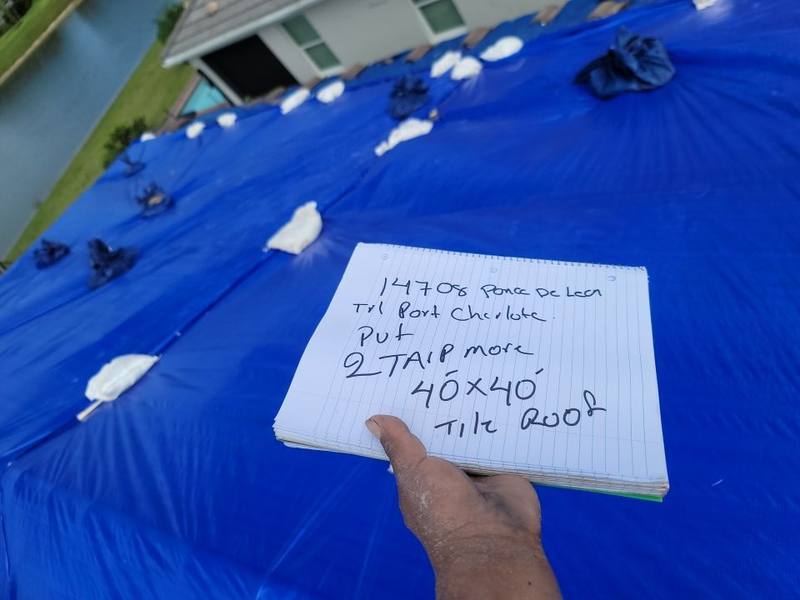 14708 Ponce De Leon
Trl Port Charlote.
Put
2 TAIP more
40'x40'
Tile Roof